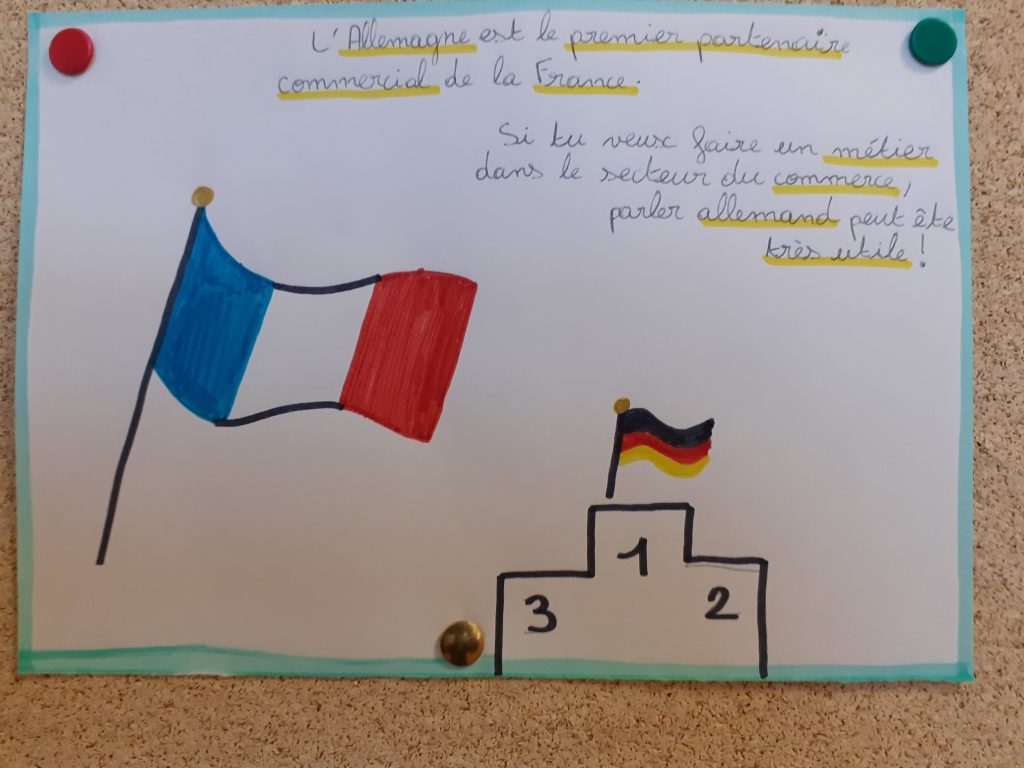 L'Allemagne est le premier partenaire
commercial de la France.
Si tu veux faire un métier
dans le secteur du commerce,
parler allemand peut ête
très utile !
1
3
2